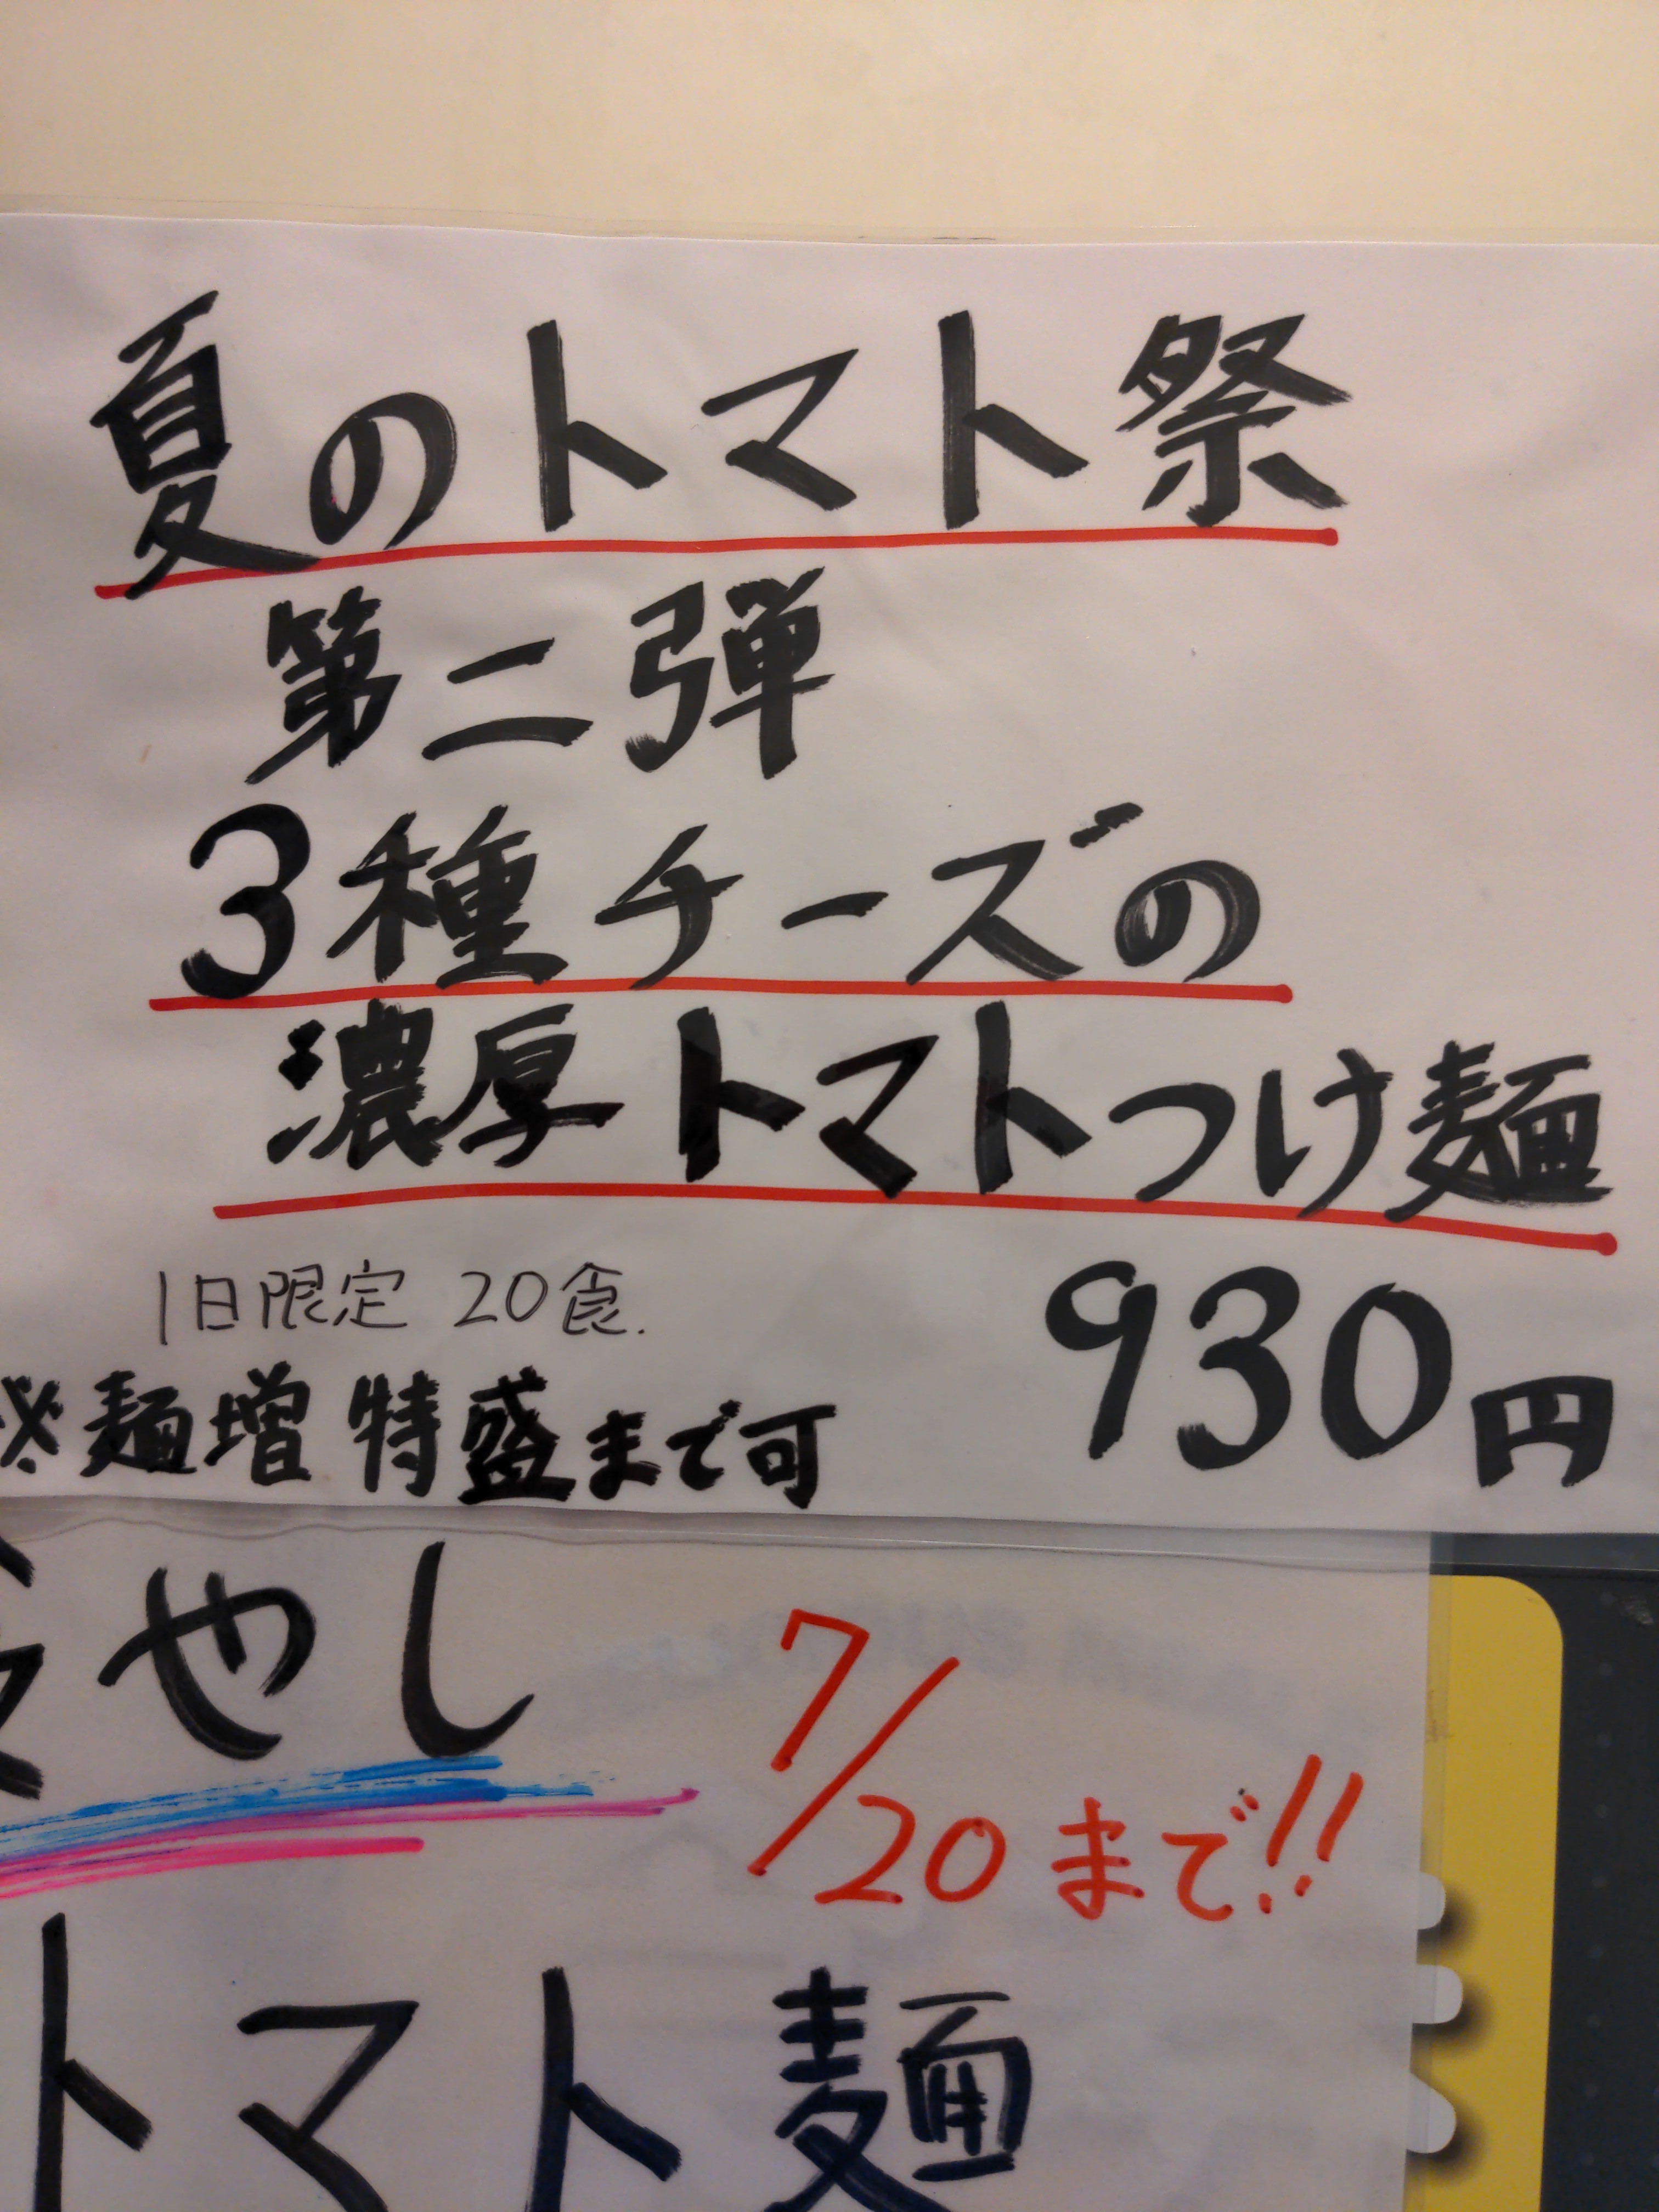 夏のトマト祭
第二弾
3種チーズの
濃厚トマトつけ麺
1日限定 20食.
930円
※麺増 特盛まで可
冷やし
7/20まで!!
トマト麺